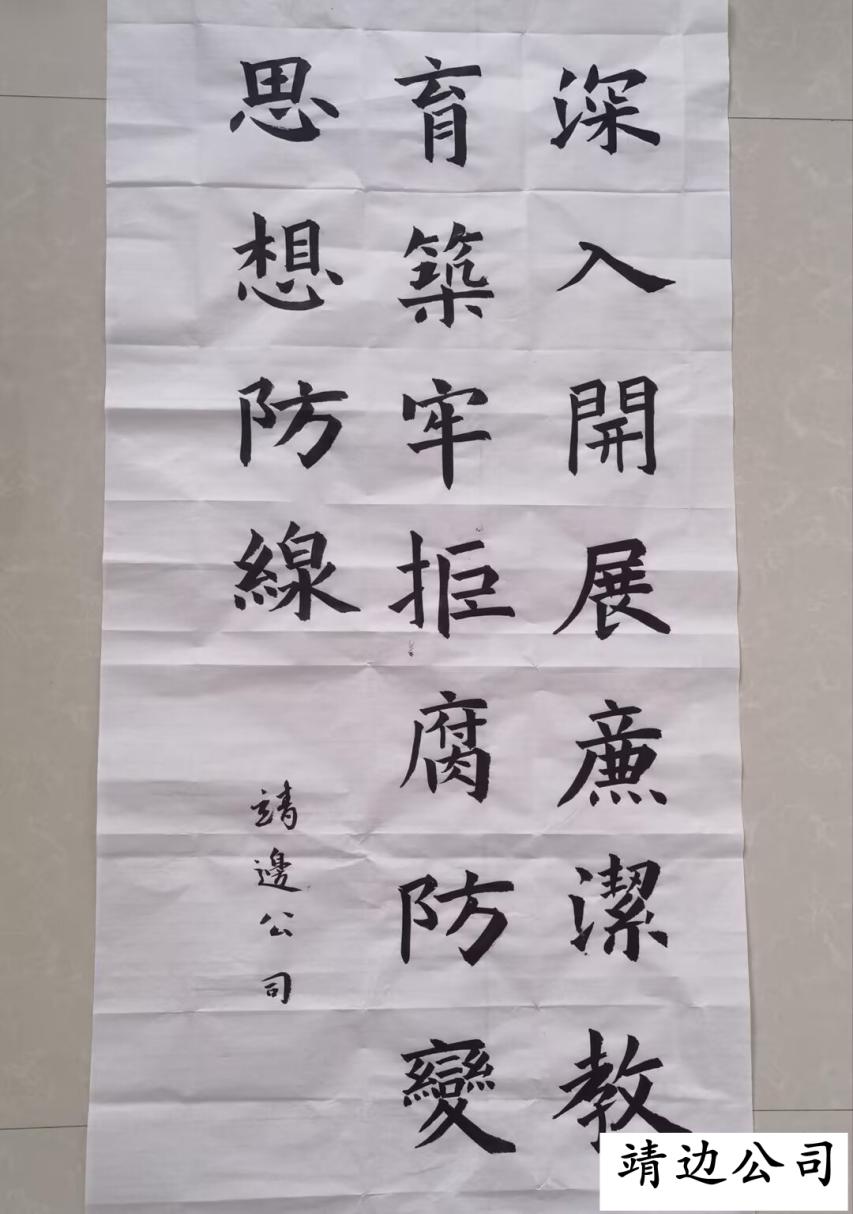 深入開展廉潔教
育築牢拒腐防變
思想防線
靖邊公司
靖边公司